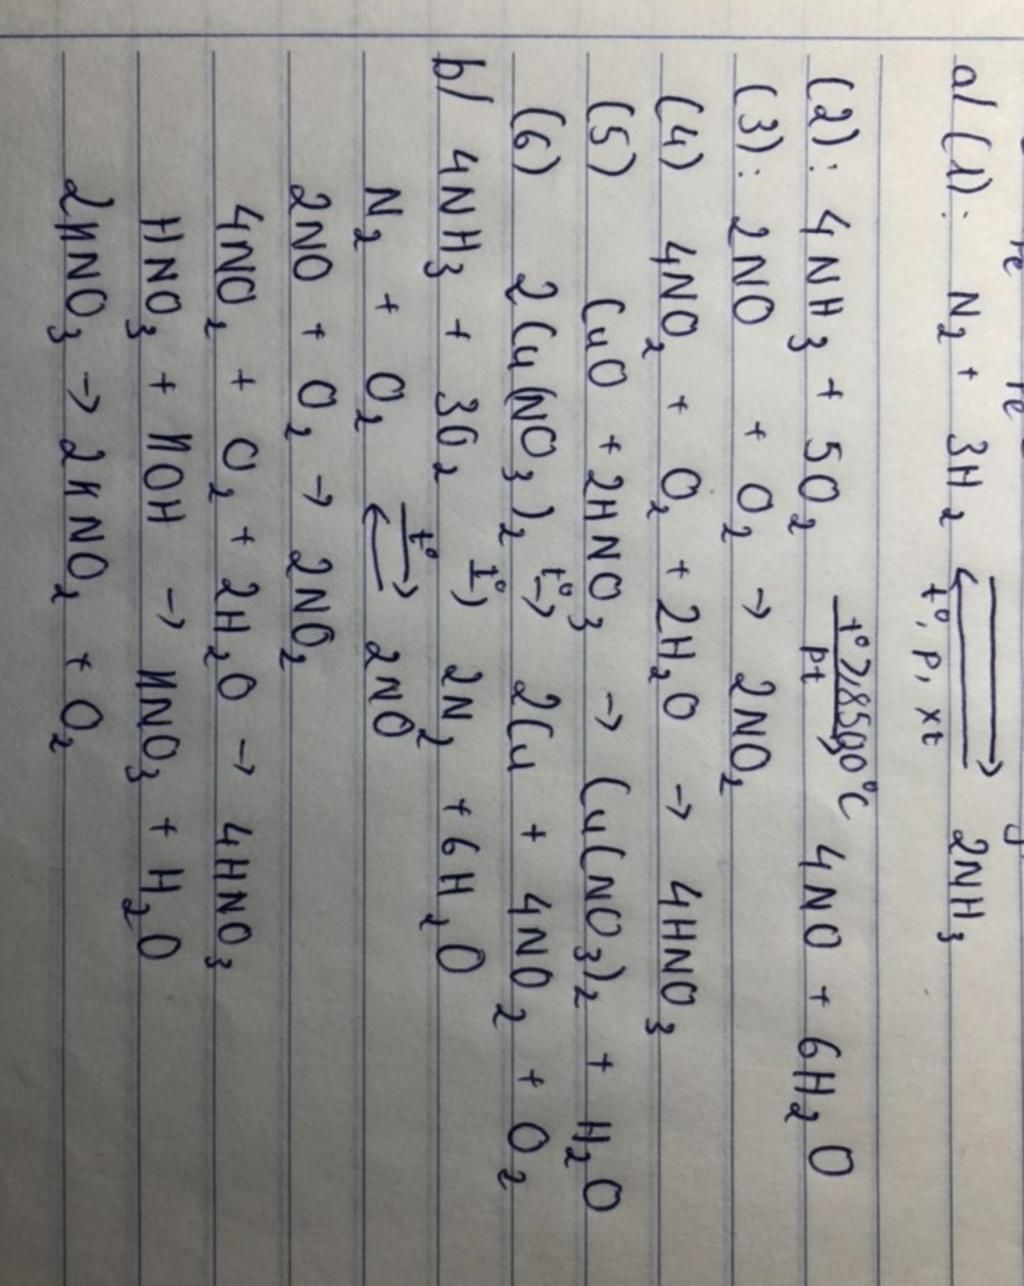 a/ (1): N₂ + 3H₂ ⇌ 2NH₃
t°, p, xt
(2): 4NH₃ + 5O₂ → 4NO + 6H₂O
pt
(3): 2NO + O₂ → 2NO₂
(4) 4NO₂ + O₂ + 2H₂O → 4HNO₃
(5) CuO + 2HNO₃ → Cu(NO₃)₂ + H₂O
(6) 2Cu(NO₃)₂ t°→ 2Cu + 4NO₂ + O₂
b/ 4NH₃ + 3O₂ t°→ 2N₂ + 6H₂O
N₂ + O₂ t°⇌ 2NO
2NO + O₂ → 2NO₂
4NO₂ + O₂ + 2H₂O → 4HNO₃
HNO₃ + HOH → HNO₃ + H₂O
2HNO₃ → 2HNO₂ + O₂